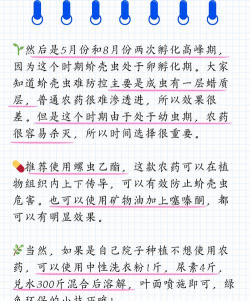 然后是5月份和8月份两次孵化高峰期，
因为这个时期蚧壳虫处于卵孵化期。大家
知道蚧壳虫难防控主要是成虫有一层蜡质
层，普通农药很难渗透进，所以效果很
差。但是这个时期由于处于幼虫期，农药
很容易杀灭，所以时间选择很重要。
推荐使用螺虫乙酯，这款农药可以在植
物组织内上下传导，可以有效防止蚧壳虫
危害。也可以使用矿物油加上噻嗪酮，都
可以有明显效果。
当然，如果是自己院子种植不想使用农
药，可以使用中性洗衣粉1斤，尿素4斤，
兑水300斤混合后溶解，叶面喷施即可，绿